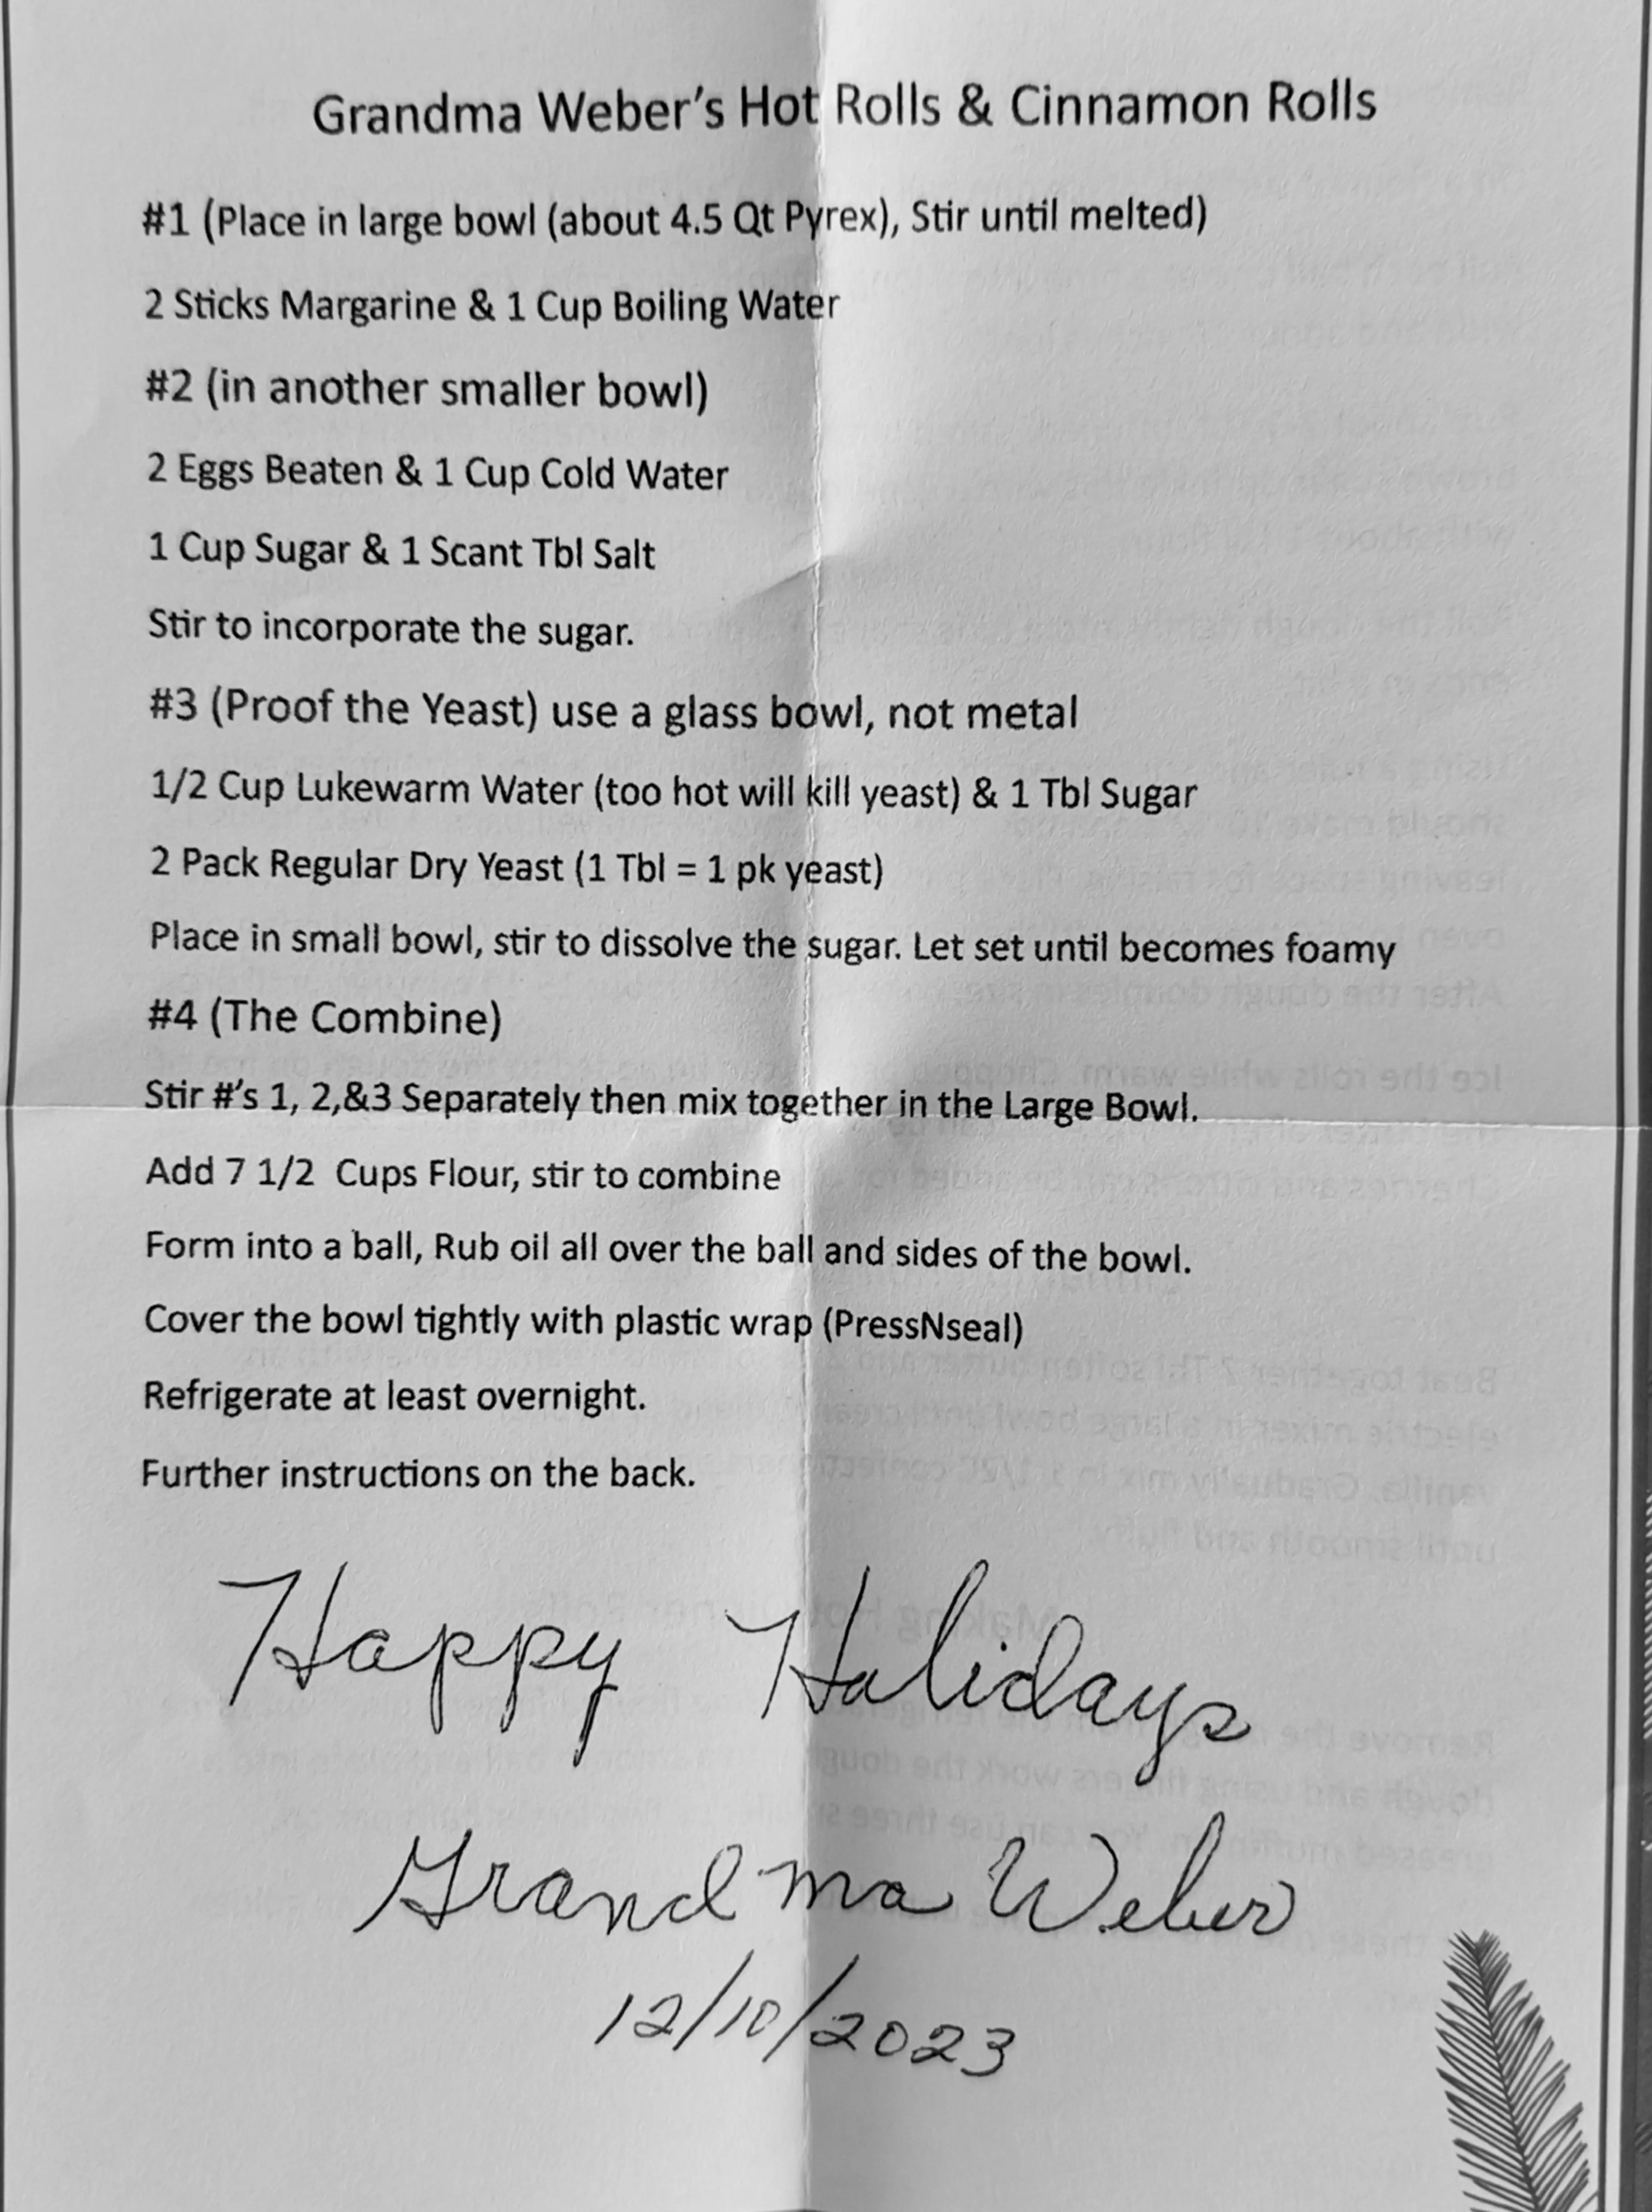 Grandma Weber's Hot Rolls & Cinnamon Rolls
#1 (Place in large bowl (about 4.5 Qt Pyrex), Stir until melted)
2 Sticks Margarine & 1 Cup Boiling Water
#2 (in another smaller bowl)
2 Eggs Beaten & 1 Cup Cold Water
1 Cup Sugar & 1 Scant Tbl Salt
Stir to incorporate the sugar.
#3 (Proof the Yeast) use a glass bowl, not metal
1/2 Cup Lukewarm Water (too hot will kill yeast) & 1 Tbl Sugar
2 Pack Regular Dry Yeast (1 Tbl = 1 pk yeast)
Place in small bowl, stir to dissolve the sugar. Let set until becomes foamy
#4 (The Combine)
Stir #'s 1, 2,&3 Separately then mix together in the Large Bowl.
Add 7 1/2  Cups Flour, stir to combine
Form into a ball, Rub oil all over the ball and sides of the bowl.
Cover the bowl tightly with plastic wrap (PressNseal)
Refrigerate at least overnight.
Further instructions on the back.
Happy Holidays
Grandma Weber
12/10/2023